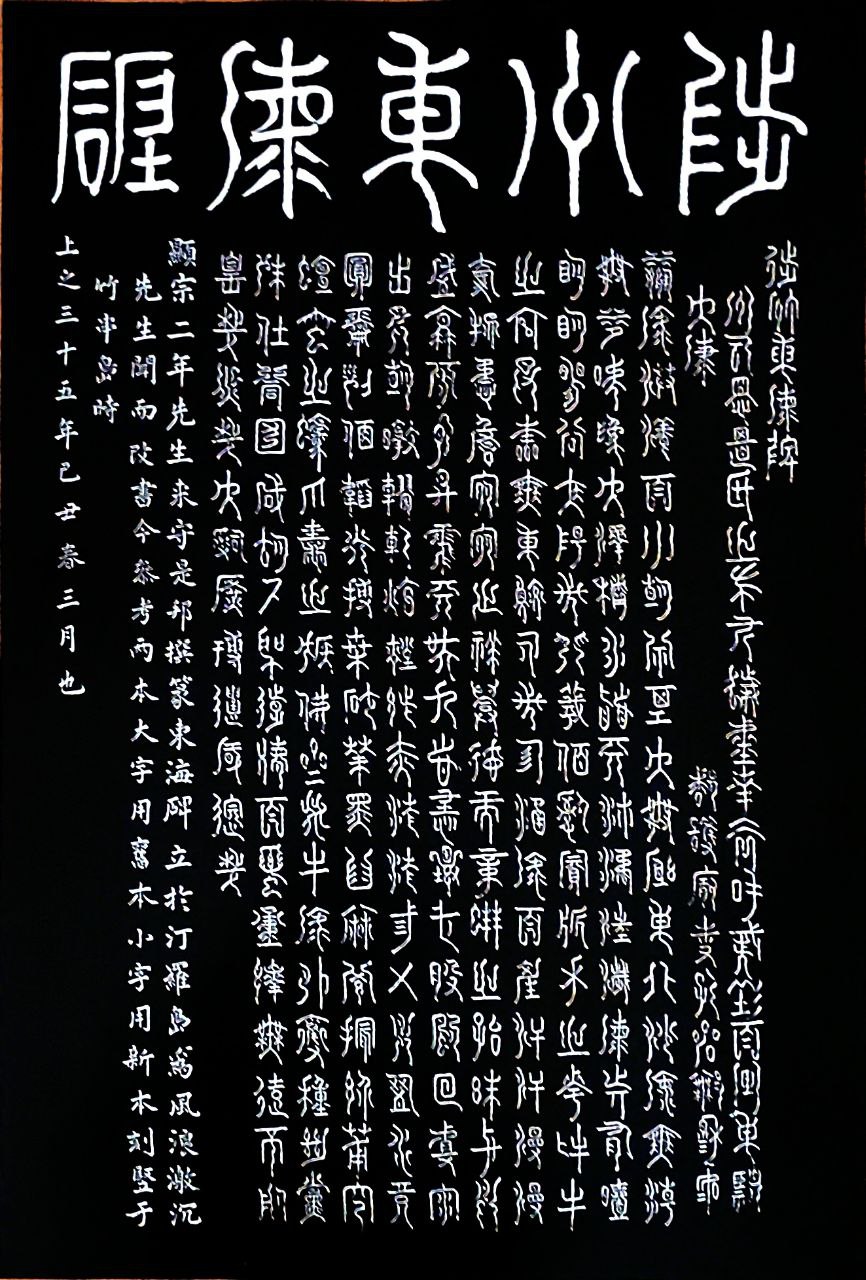 陟州東海碑
陟州東海碑
瀛海漭瀁百川朝宗其大無窮東北沙海無潮
無汐號爲大澤積水稽天浡潏汪濊海動有曀
明明暘谷太陽之門羲伯司賓析木之次牝牛
之宮日本無東蛟人之珍涵海百産汗汗漫漫
奇物譎詭宛宛之祥興德而章蚌之胎珠與月
盛衰旁氣昇霏天吳九首怪夔一股颷回且雨
出日朝暾轇軋炫煌紫赤滄滄三五月盈水鏡
圓靈列宿韜光扶桑砂華黑齒麻羅撮髻莆家
蜒蠻之蠔爪蛙之猴佛齊之牛海外雜種絶儻
殊俗同囿咸育古聖遠德百蠻重譯無遠不服
皇哉熙哉大治廣博遺風邈哉
顯宗二年先生來守是邦撰篆東海碑立於汀羅島爲風浪激沉
先生聞而改書今參考兩本大字用舊本小字用新本刻竪于
竹串島時
上之三十五年己丑春三月也